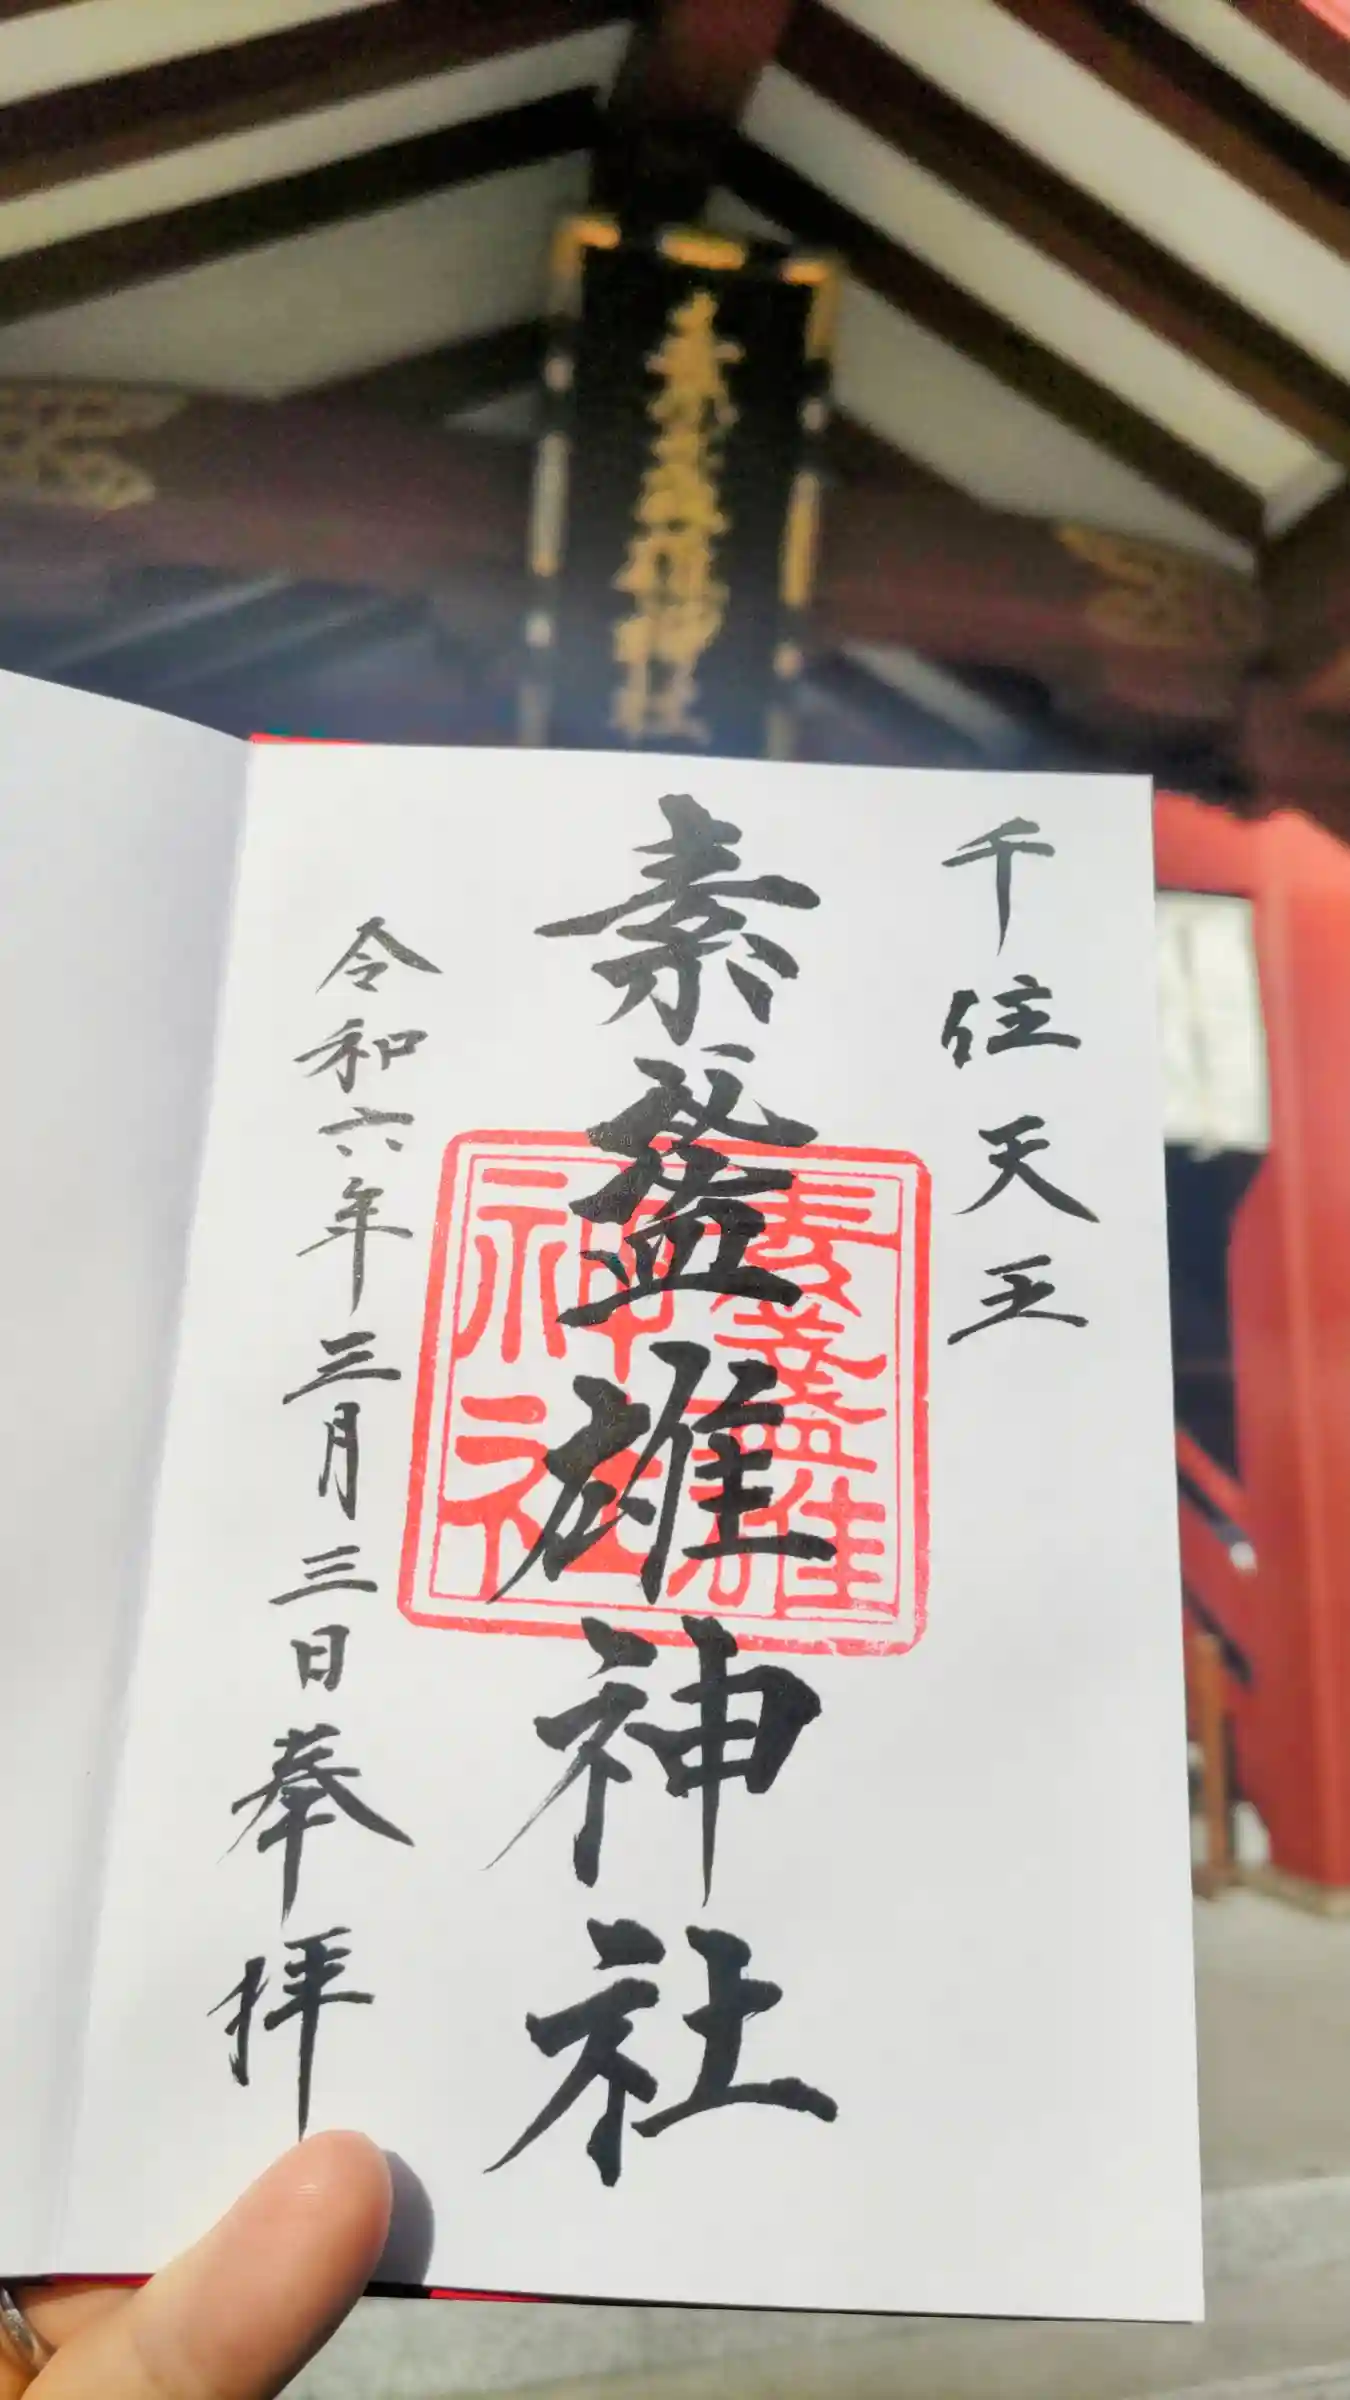 素盞雄神社
千住天王
素盞雄神社
素盞雄
神社
令和六年三月三日奉拝